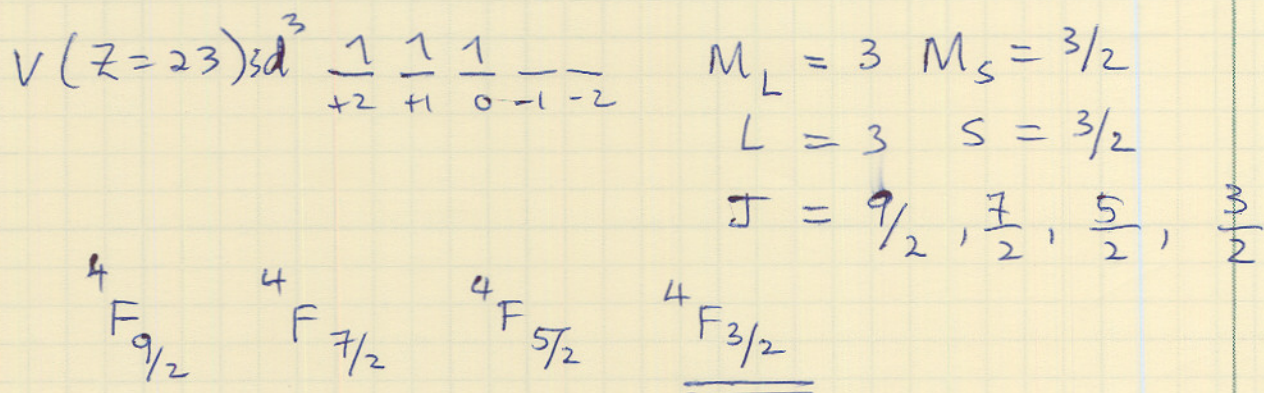 V (Z = 23) 3d³ 1 1 1 _ _ M_L = 3 M_S = 3/2
+2 +1 0 -1 -2
L = 3 S = 3/2
J = 9/2, 7/2, 5/2, 3/2
⁴F9/2 ⁴F7/2 ⁴F5/2 ⁴F3/2